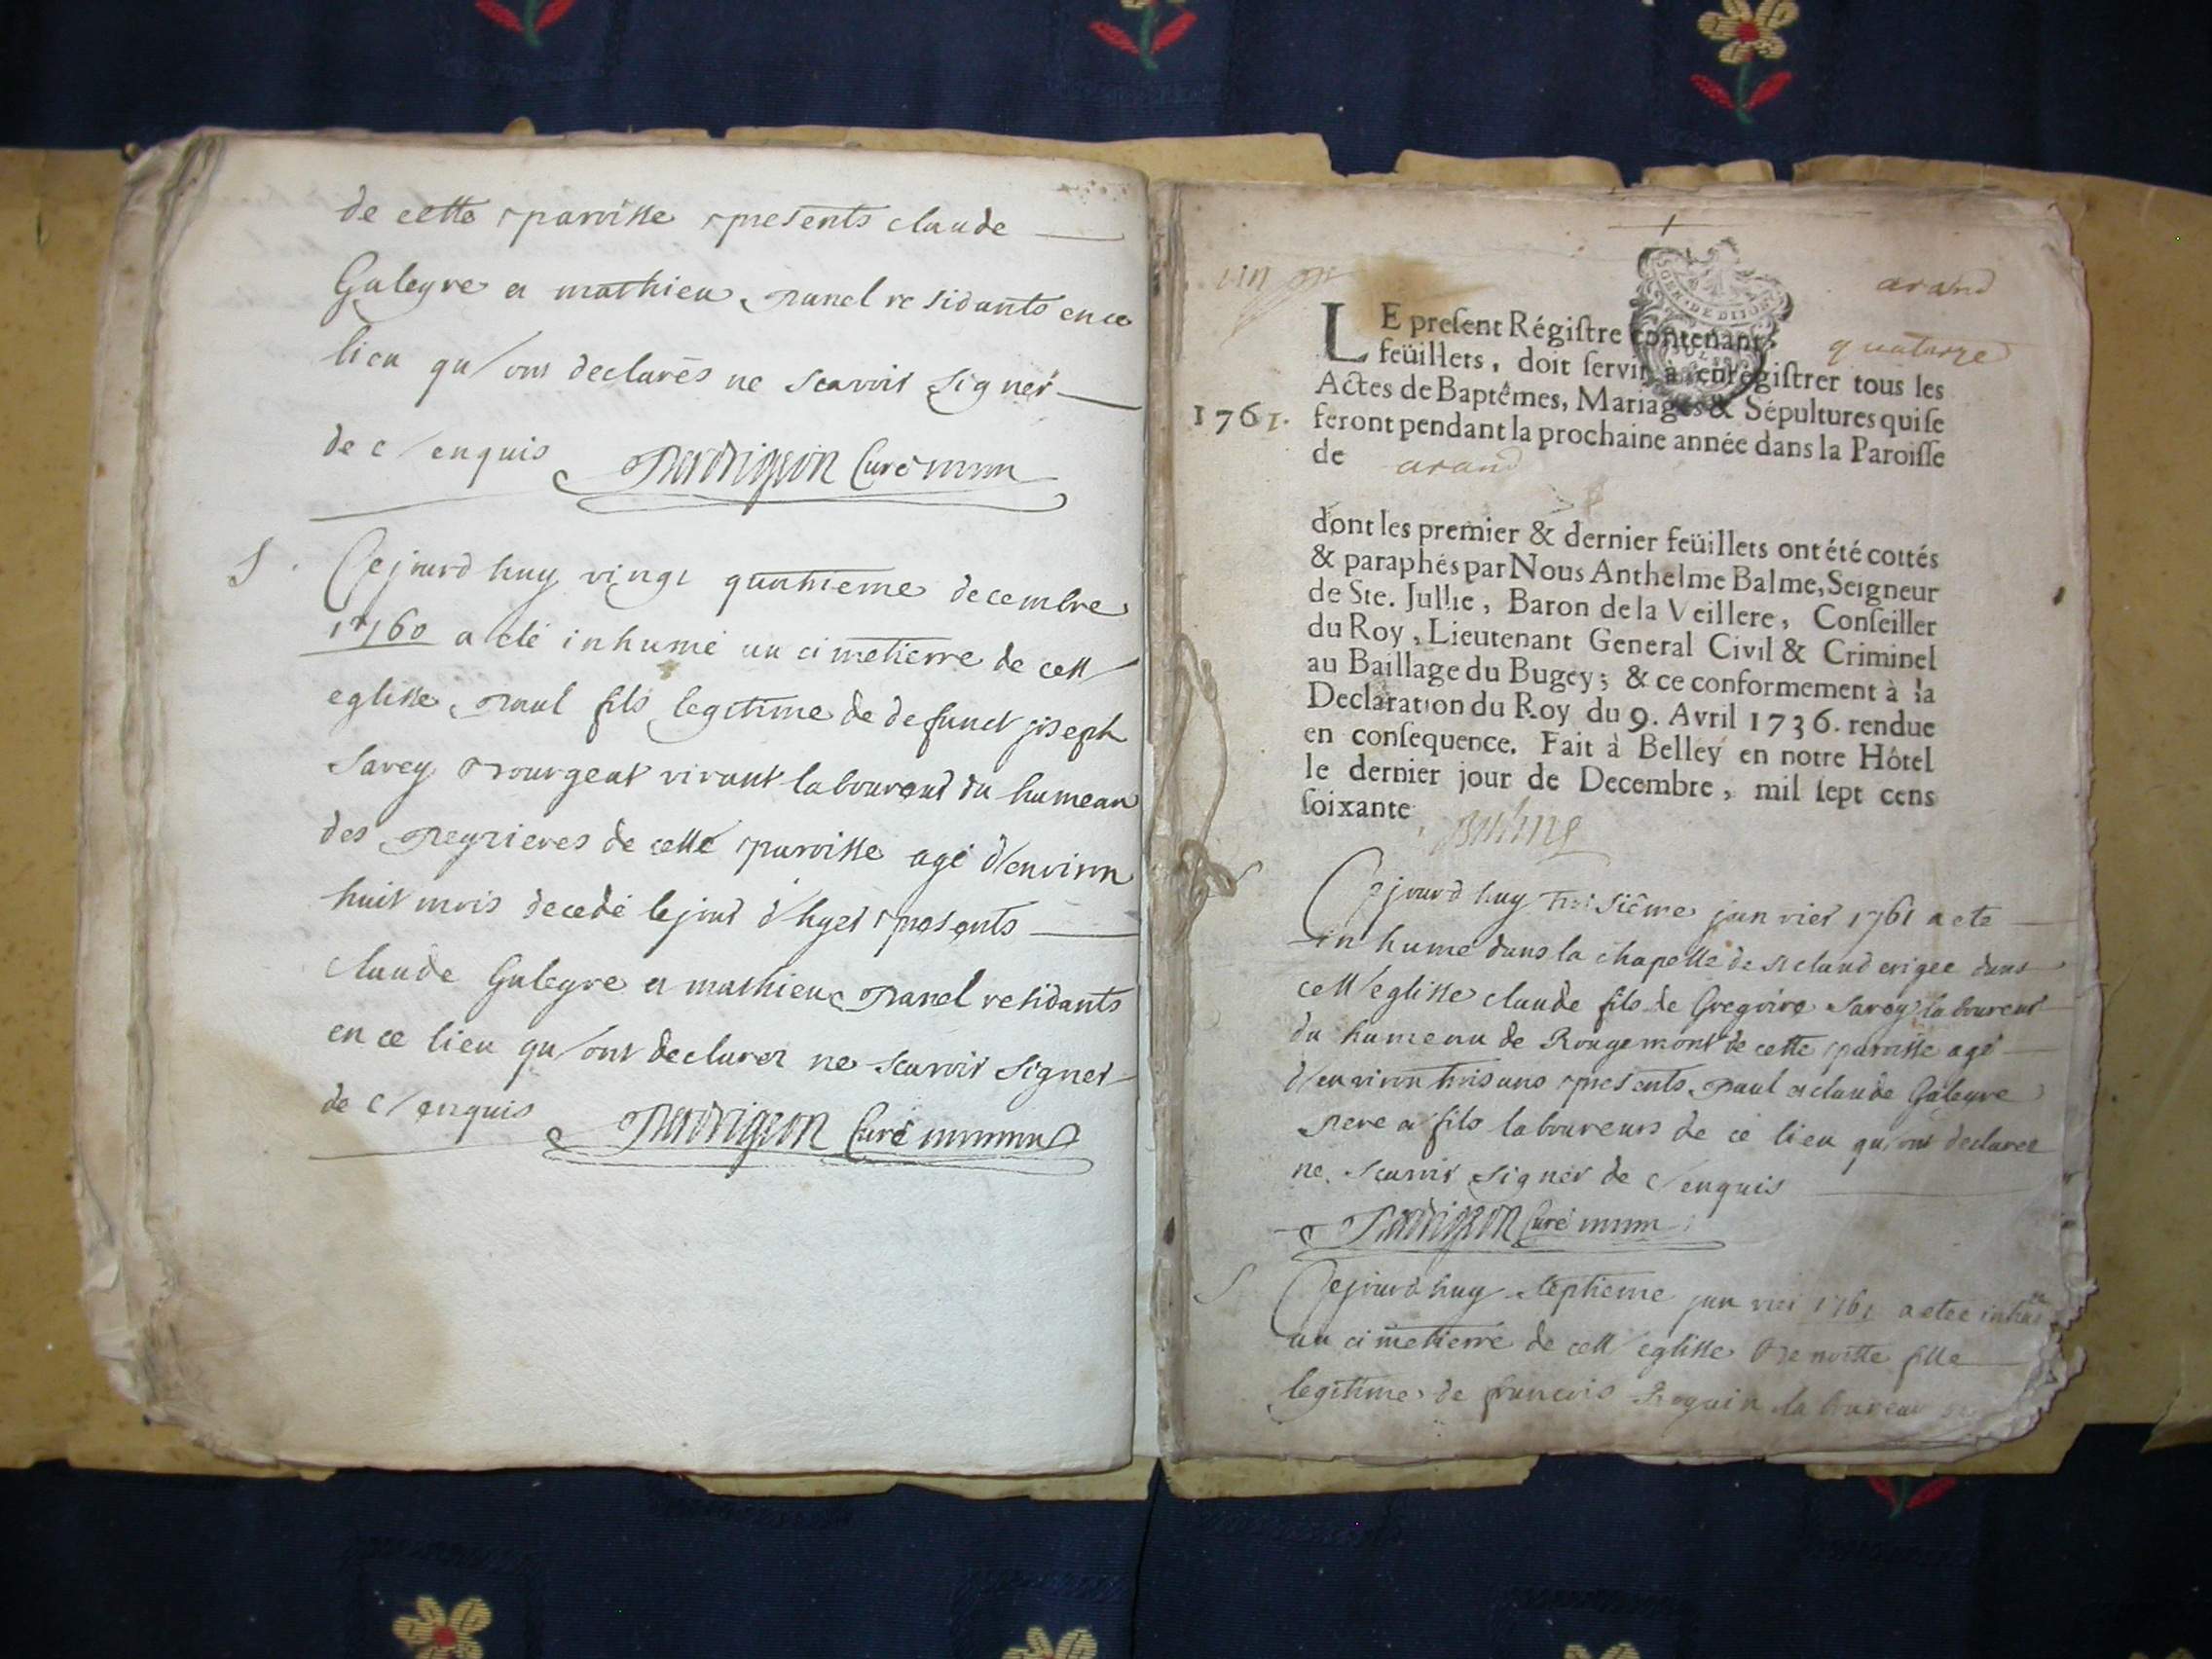 de cette paroisse presents claude
Galeyre et mathieu panel residants en ce
lieu qu'ont declarés ne scavoir signer
de c/ enquis Perdrigeon Curé
S. Cejourd huy vingt quatrieme decembre
1760 a eté inhumé au cimetierre de cett
eglisse paul fils legitime de defunct joseph
Savey Bourgeat vivant laboureur du hameau
des pezrieres de cette paroisse agé d'environ
huit mois decedé le jour d'hyer presents
claude Galeyre et mathieu panel residants
en ce lieu qu'ont declarez ne scavoir signer
de c/ enquis Perdrigeon Curé
un
arand
LE present Régistre contenant quatorze
feüillets, doit servir à enregistrer tous les
Actes de Baptêmes, Mariages & Sépultures qui se
1761. feront pendant la prochaine année dans la Paroisse
de arand
dont les premier & dernier feüillets ont été cottés
& paraphés par Nous Anthelme Balme, Seigneur
de Ste. Jullie, Baron de la Veillere, Conseiller
du Roy, Lieutenant General Civil & Criminel
au Baillage du Bugey; & ce conformement à la
Declaration du Roy du 9. Avril 1736. rendue
en consequence. Fait à Belley en notre Hôtel
le dernier jour de Decembre, mil sept cens
soixante Balme
S Cejourd huy troisiême janvier 1761 a ete
inhumé dans la chapelle de st claud erigee dans
cett eglisse claude fils de Gregoire Savey laboureur
du hameau de Rougemont de cette paroisse agé
d'environ trois ans presents paul et claude Galeyre
pere et fils laboureurs de ce lieu qu'ont declarez
ne scavoir signer de c/ enquis
Perdrigeon Curé
S Cejourd huy septieme janvier 1761 a etee inhu
au cimetierre de cett eglisse Benoitte fille
legitime de francois Roguin laboureur